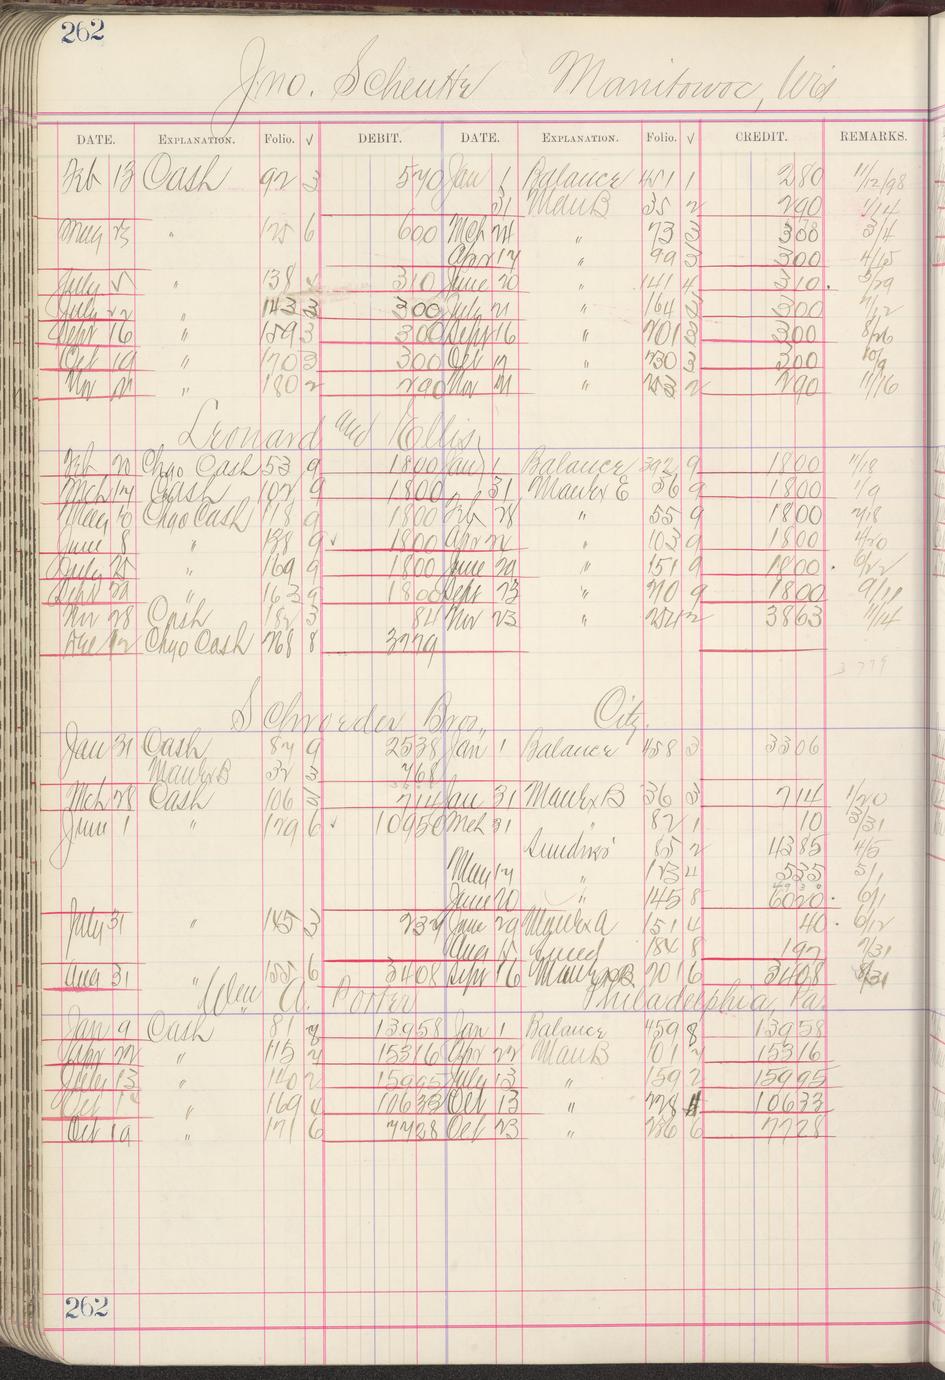 262
Jno. Scheutte Manitowoc, Wis
DATE. EXPLANATION. Folio. √ DEBIT. DATE. EXPLANATION. Folio. √ CREDIT. REMARKS.
Feb 13 Cash 92 3 570 Jan 1 Balance 451 1 280 11/12/98
31 Man B 35 2 290 1/14
May 23 " 125 6 600 Mch 24 " 73 3 300 3/4
Apr 17 " 99 3 300 4/15
July 5 " 138 4 310 June 20 " 141 4 310 5/29
July 22 " 143 3 300 July 21 " 164 3 300 7/12
Sept 16 " 159 3 300 Sept 16 " 201 3 300 8/26
Oct 19 " 170 3 300 Oct 17 " 230 3 300 10/9
Nov 21 " 180 2 290 Nov 21 " 253 2 290 11/16
Leonard and Ellis,
Feb 20 Chgo Cash 53 9 1800 Jan 1 Balance 392 9 1800 11/18
Mch 17 Cash 102 9 1800 31 Manfx E 36 9 1800 1/9
May 10 Chgo Cash 118 9 1800 Feb 28 " 55 9 1800 2/18
June 8 " 138 9 1800 Apr 24 " 103 9 1800 4/20
July 25 " 169 9 1800 June 29 " 151 9 1800 6/22
Sept 29 " 163 9 1800 Sept 23 " 210 9 1800 9/11
Nov 28 Cash 182 3 84 Nov 23 " 254 2 3863 11/14
Chgo Cash 268 8 3779
3779
Schroeder Bros., City.
Jan 31 Cash 87 9 2538 Jan 1 Balance 458 3 3306
Manfx B 32 3 768
Mch 28 Cash 106 714 Jan 31 Manfx B 36 3 714 1/20
June 1 " 129 6 10950 Mch 31 " 82 1 10 3/31
Sundries 85 2 4385 4/5
May 17 " 123 4 535 5/1
June 20 " 145 8 6020 6/1
July 31 " 145 3 232 June 29 Manfx A 151 4 40 6/12
Aug 15 184 8 192 7/31
Aug 31 " 155 6 3408 Sept 16 Manfx B 201 6 3408 8/31
Wm A. Porter Philadelphia, Pa.
Jan 9 Cash 81 8 13958 Jan 1 Balance 459 8 13958
Apr 22 " 115 7 15316 Apr 22 Man B 101 7 15316
July 13 " 140 2 15995 July 13 " 159 2 15995
Oct " 169 4 10633 Oct 13 " 228 4 10633
Oct 19 " 171 6 7728 Oct 23 " 236 6 7728
262